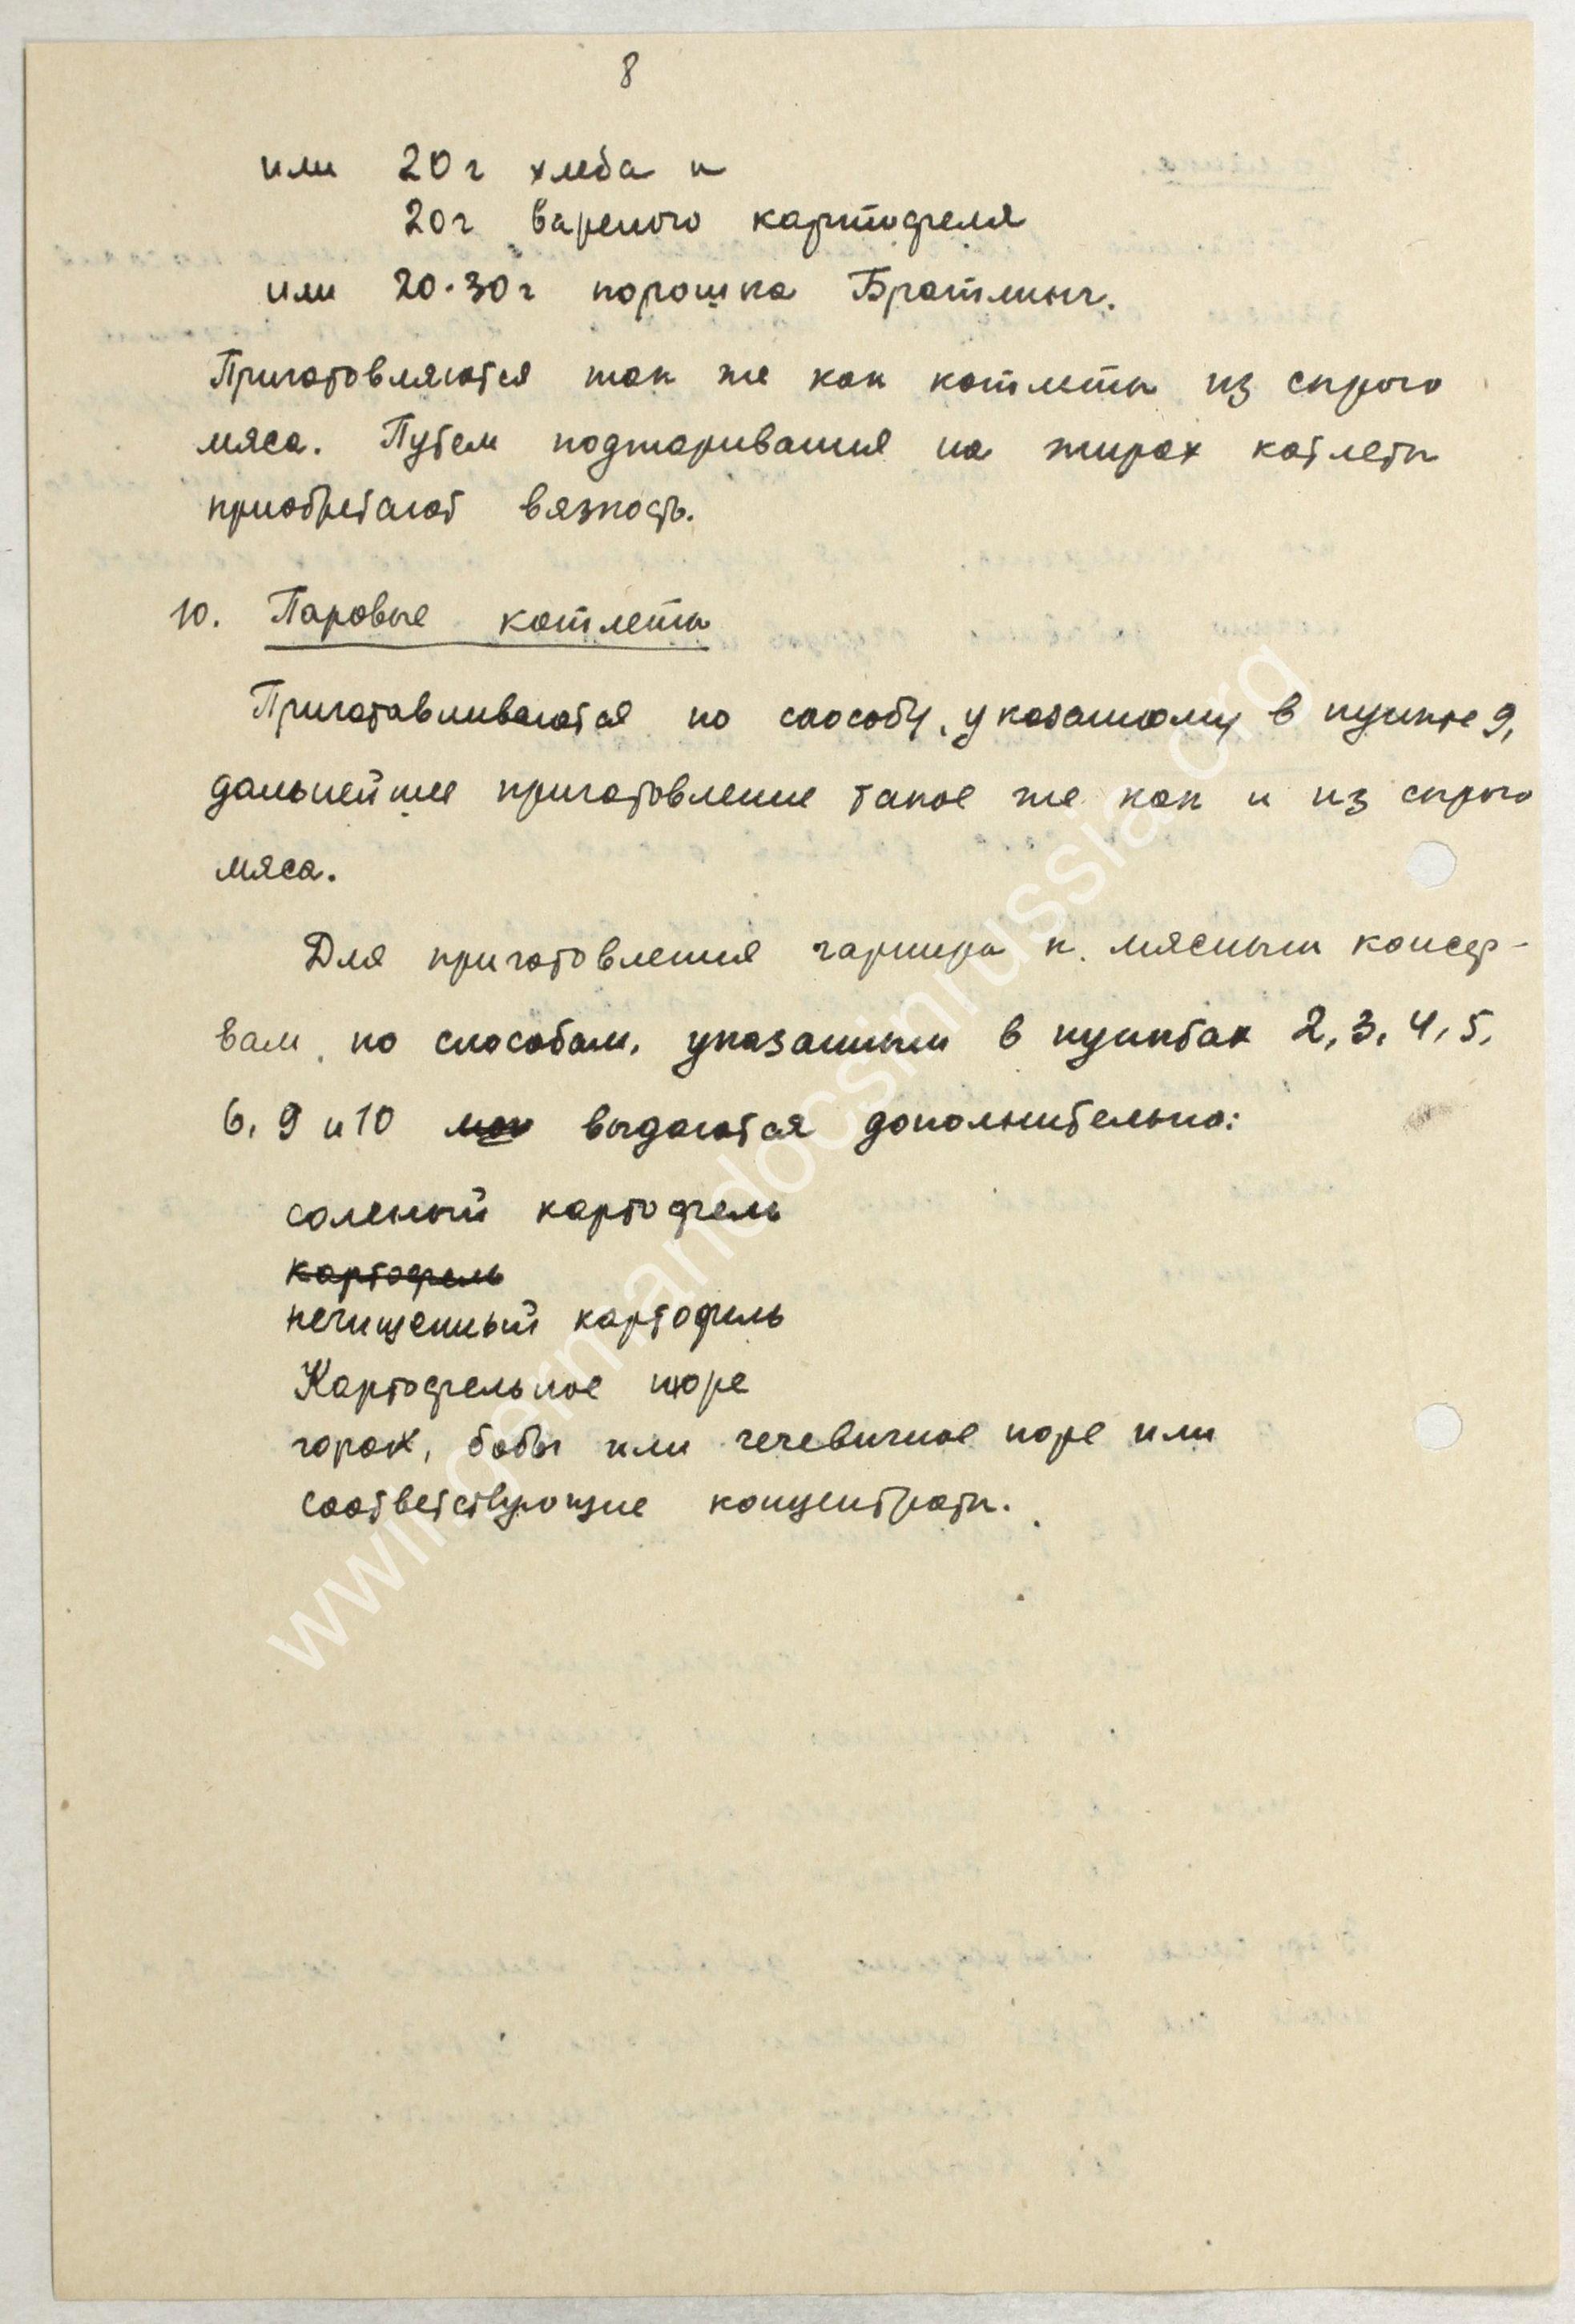 8
или 20 г хлеба и
20 г вареного картофеля
или 20-30 г порошка Братлинг.
Приготовляются так же как котлеты из сырого
мяса. Путем поджаривания на жирах котлеты
приобретают вязкость.
10. Паровые котлеты
Приготавливаются по способу, указанному в пункте 9,
дальнейшее приготовление такое же как и из сырого
мяса.
Для приготовления гарнира к мясным консер-
вам, по способам, указанным в пунктах 2, 3, 4, 5,
6, 9 и 10 мож выдаются дополнительно:
соленый картофель
картофель
нечищенный картофель
Картофельное пюре
горох, бобы или чечевичное пюре или
соответствующие концентраты.
wwii.germandocsinrussia.org